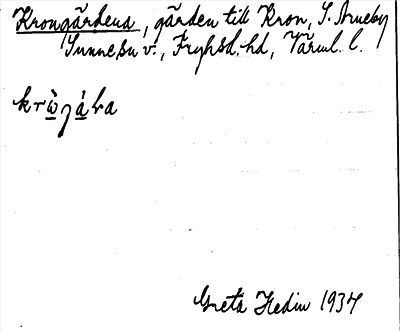 Krongärdena, gärden till Kron, S. Årneby
Sunne sn v., Fryksd. hd, Värml. l.
krὼŋάɫa
Greta Hedin 1937